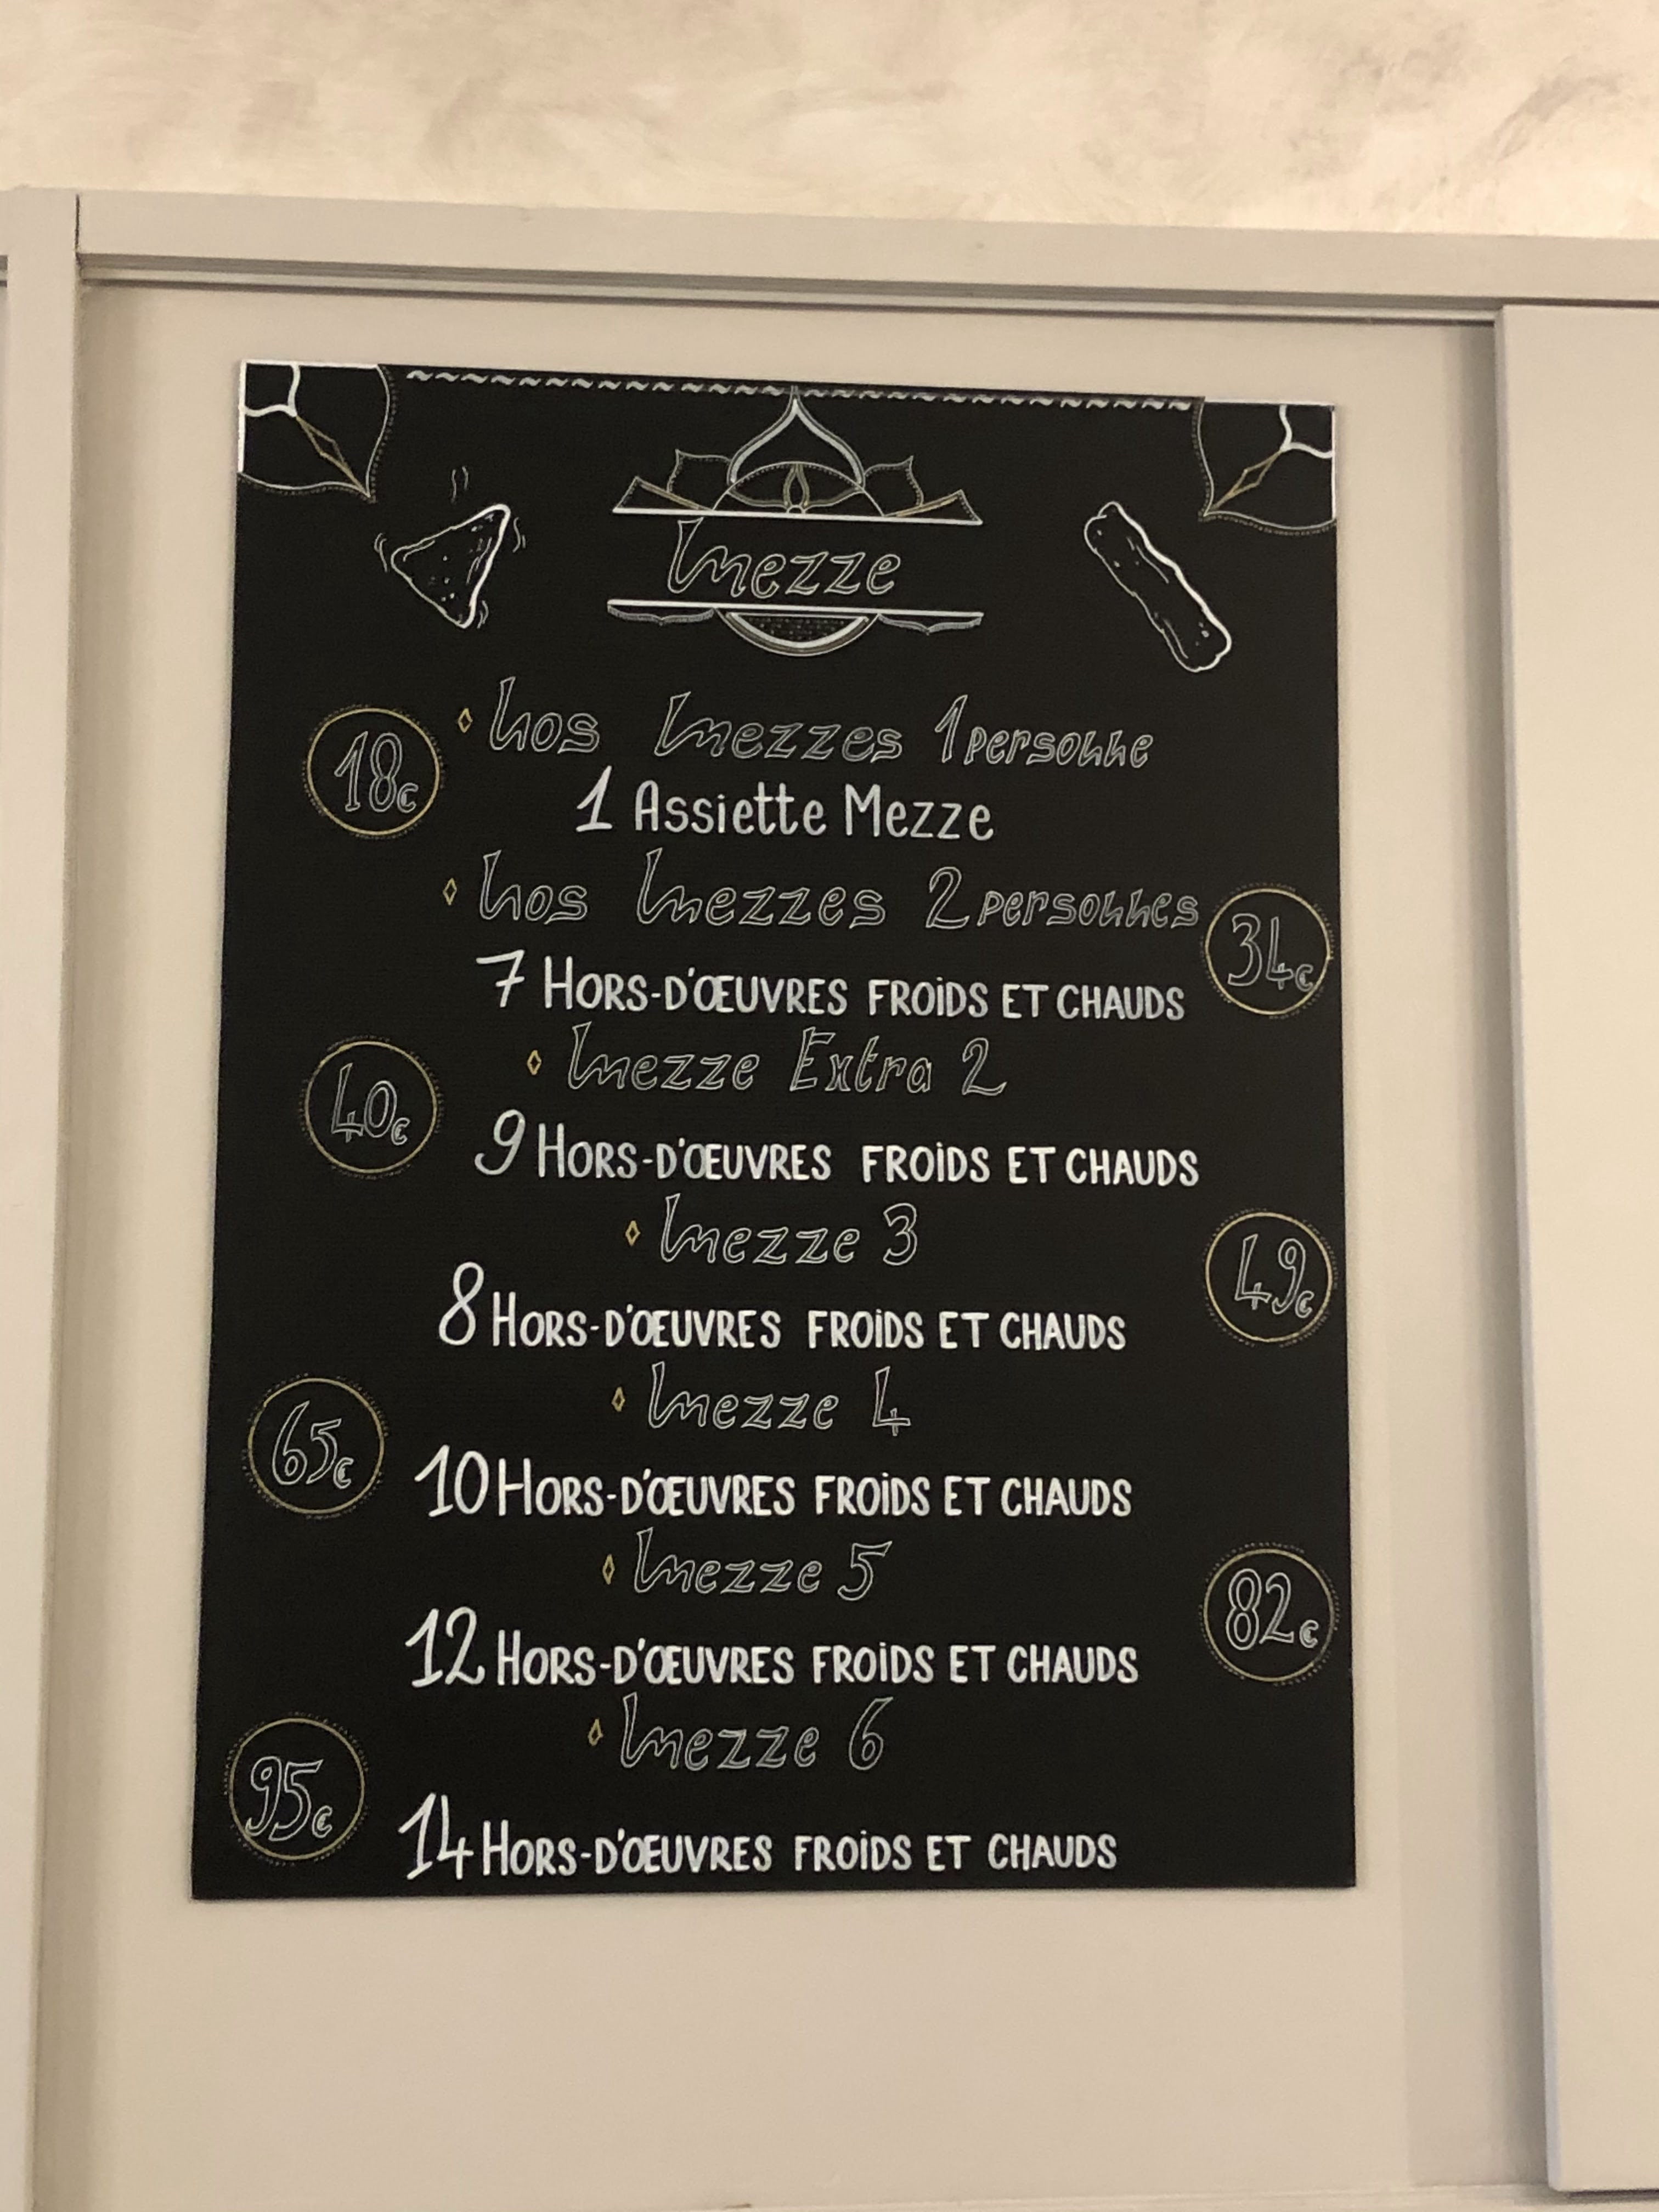 Mezze
Nos Mezzes 1 personne
18€
1 Assiette Mezze
Nos Mezzes 2 personnes
34€
7 HORS-D'ŒUVRES FROIDS ET CHAUDS
Mezze Extra 2
40€
9 HORS-D'ŒUVRES FROIDS ET CHAUDS
Mezze 3
49€
8 HORS-D'ŒUVRES FROIDS ET CHAUDS
Mezze 4
65€
10 HORS-D'ŒUVRES FROIDS ET CHAUDS
Mezze 5
82€
12 HORS-D'ŒUVRES FROIDS ET CHAUDS
Mezze 6
95€
14 HORS-D'ŒUVRES FROIDS ET CHAUDS